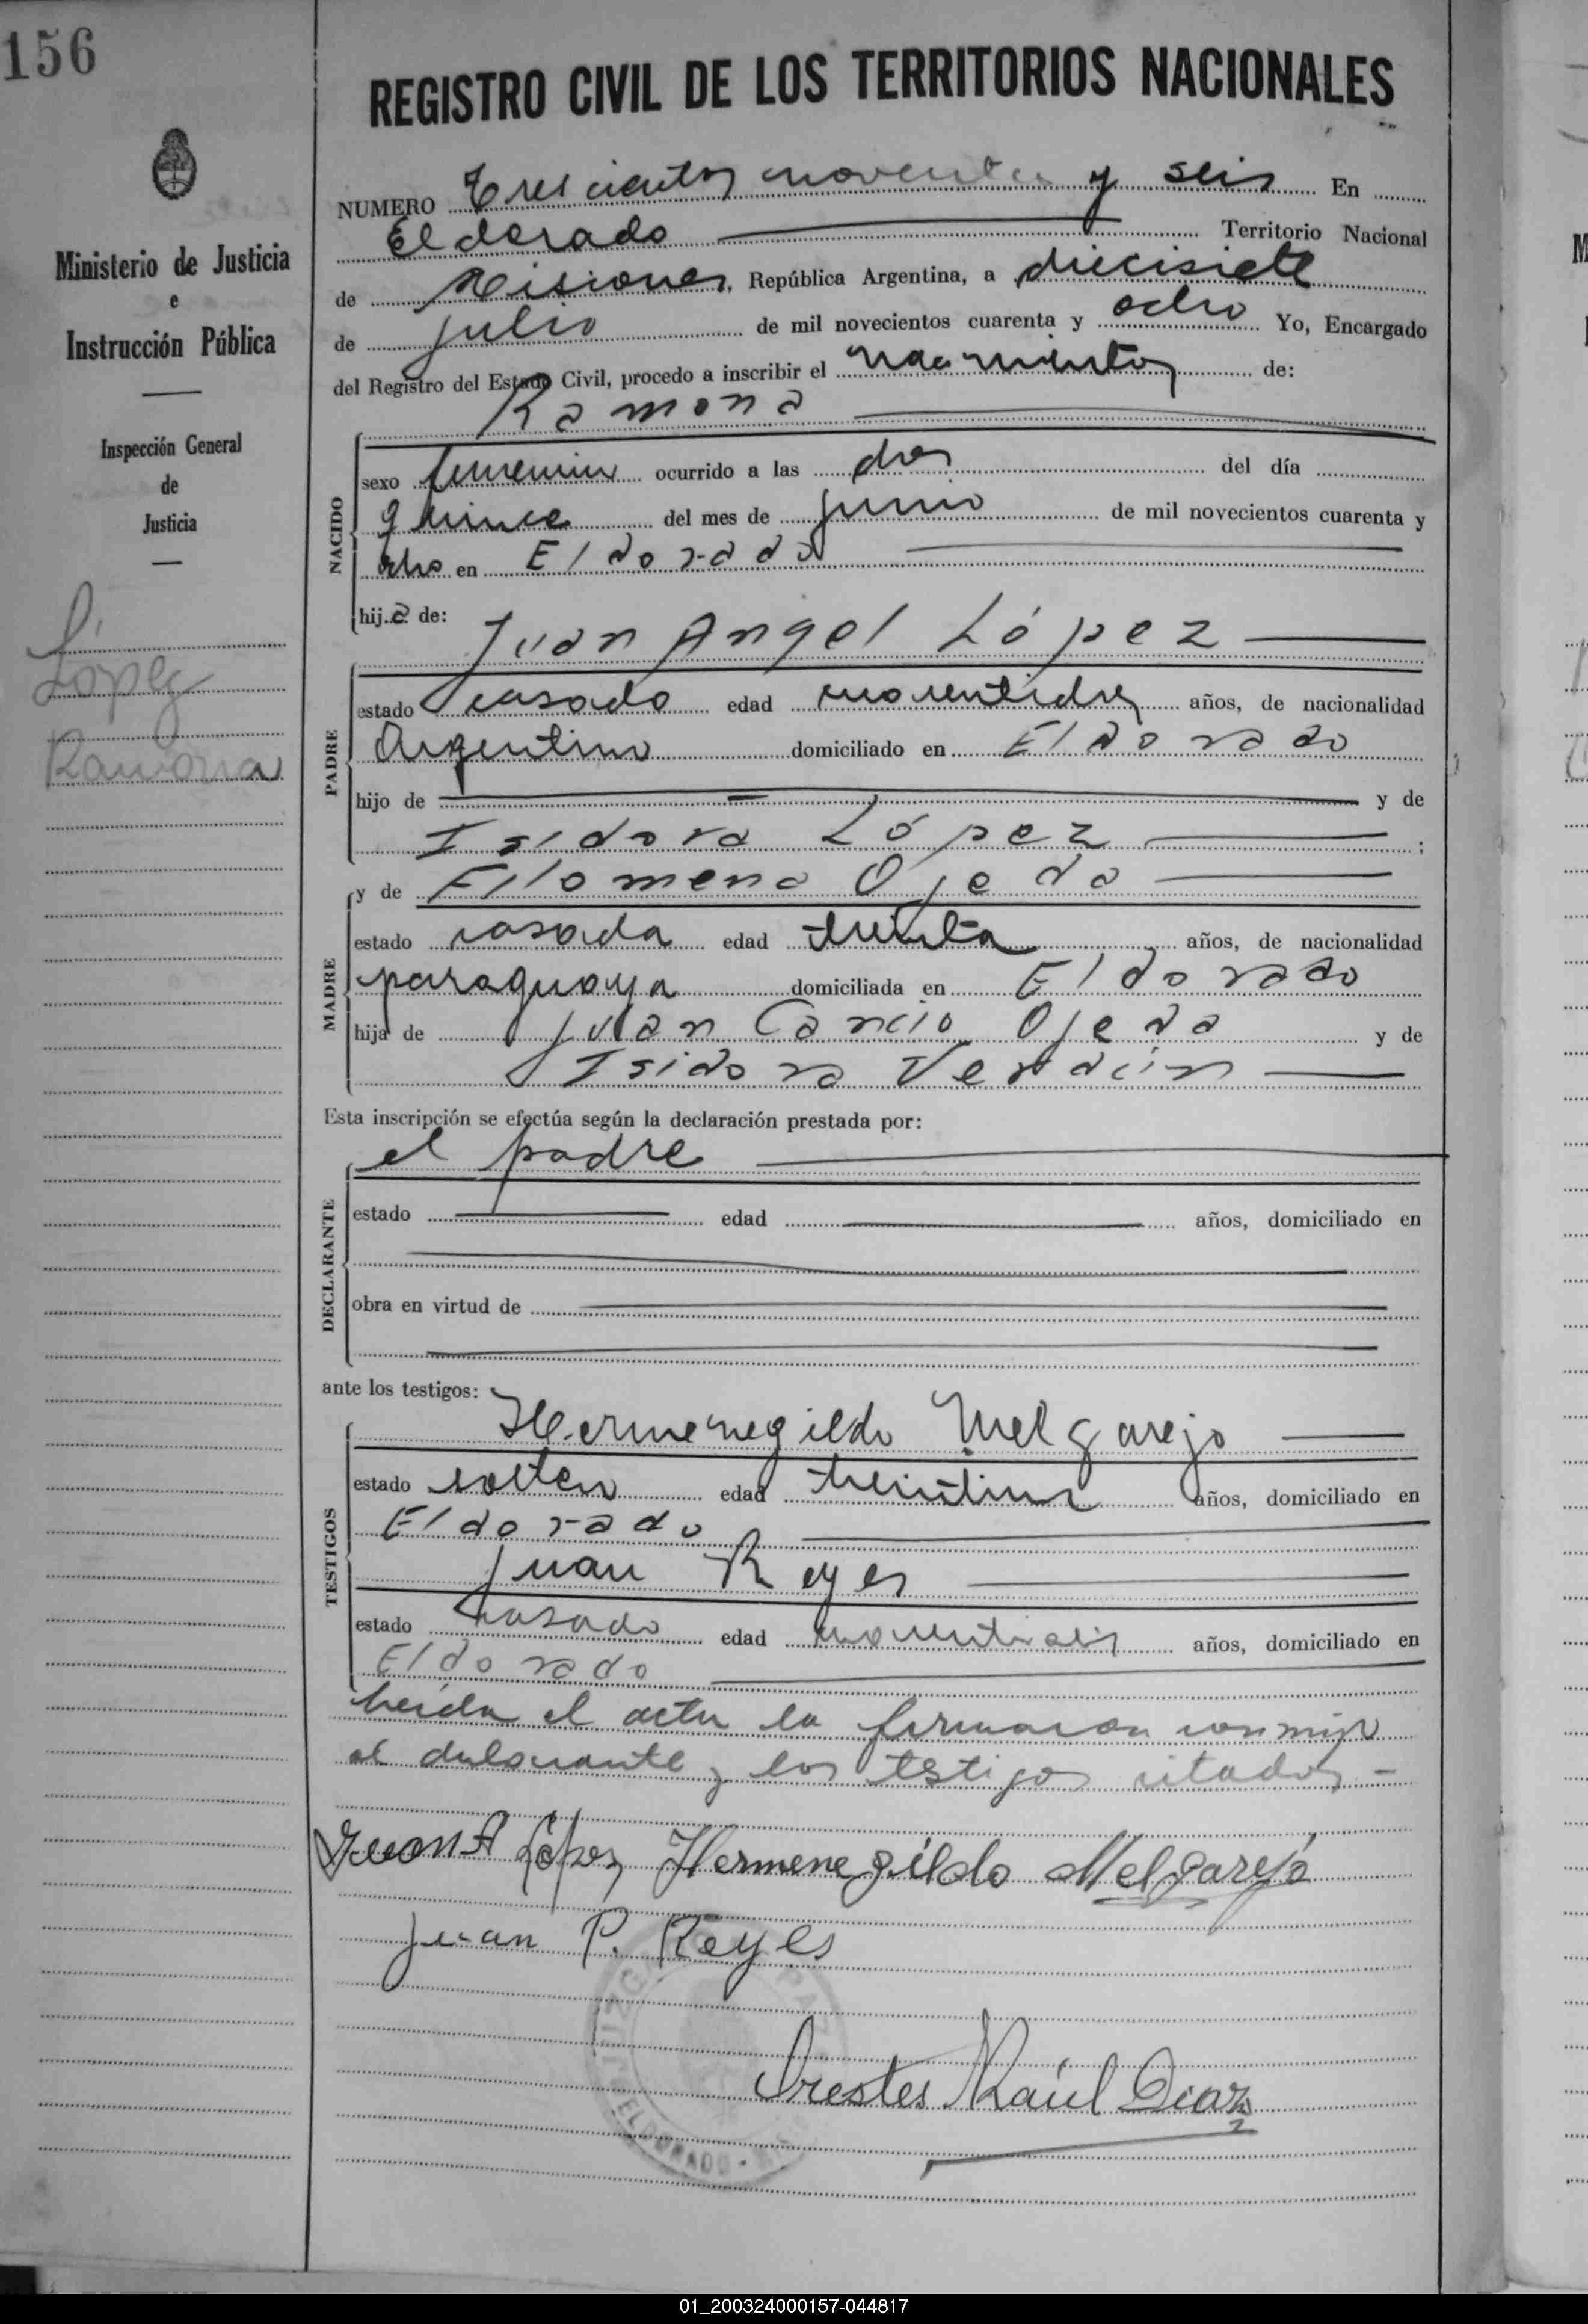 156
REGISTRO CIVIL DE LOS TERRITORIOS NACIONALES
Ministerio de Justicia
e
Instrucción Pública
Inspección General
de
Justicia
L
López
Ramona
NUMERO Trescientos noventa y seis En
Eldorado Territorio Nacional
de Misiones, República Argentina, a diecisiete
de julio de mil novecientos cuarenta y ocho Yo, Encargado
del Registro del Estado Civil, procedo a inscribir el nacimiento de:
Ramona
NACIDO
sexo femenino ocurrido a las dos del día
quince del mes de junio de mil novecientos cuarenta y
ocho en Eldorado
hija de:
Juan Angel López
PADRE
estado casado edad cuarentidos años, de nacionalidad
Argentino domiciliado en Eldorado
hijo de y de
Isidora López ;
y de Filomena Ojeda
MADRE
estado casada edad treinta años, de nacionalidad
paraguaya domiciliada en Eldorado
hija de Juan Cancio Ojeda y de
Isidora
Esta inscripción se efectúa según la declaración prestada por:
el padre
DECLARANTE
estado edad años, domiciliado en
obra en virtud de
ante los testigos:
Hermenegildo Melgarejo
TESTIGOS
estado soltero edad años, domiciliado en
Eldorado
Juan Reyes
estado casado edad cuarentiseis años, domiciliado en
Eldorado
Leída el acta la firmaron conmigo
el declarante y los testigos citados -
Juan A López Hermenegildo Melgarejo
Juan P. Reyes
Orestes Raúl Diaz
ELDORADO
01_200324000157-044817